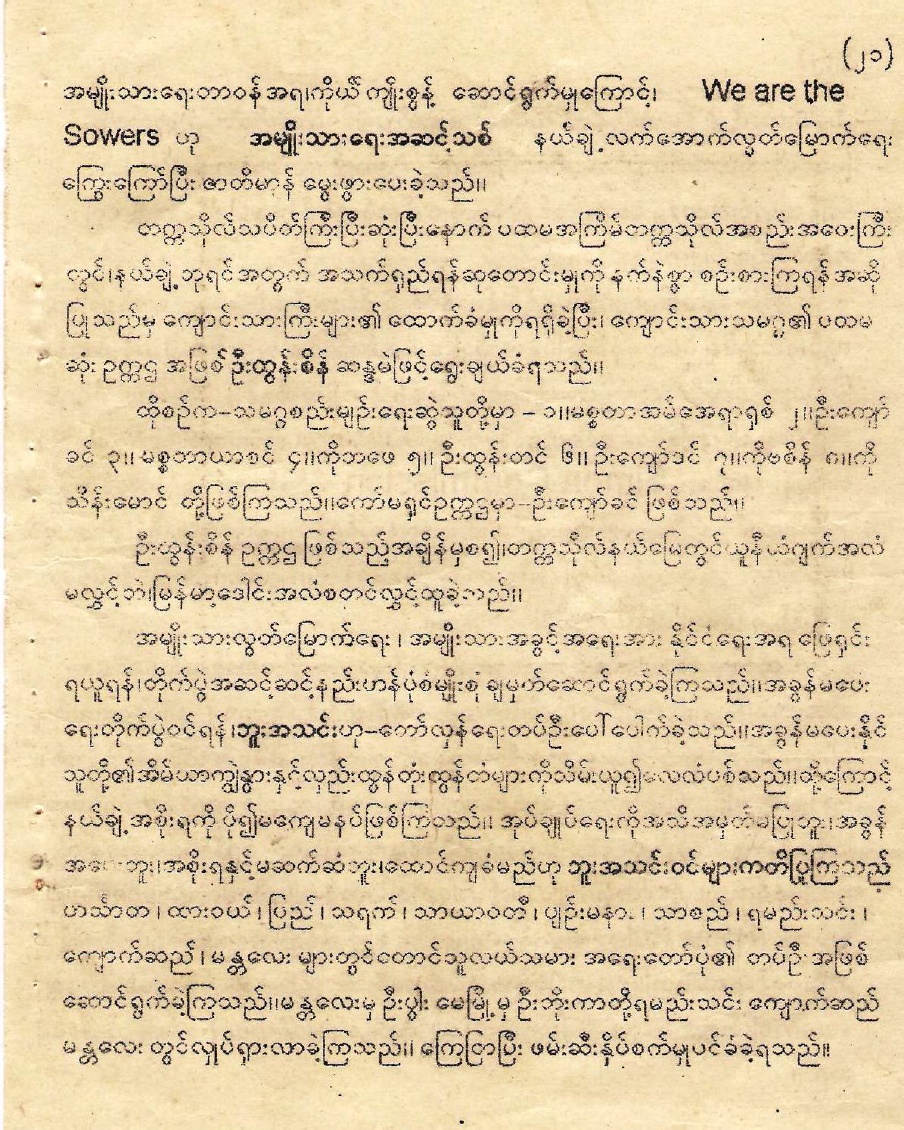 (၂၁)
အမျိုးသားရေးတာဝန်အရ၊ကိုယ်ကျိုးစွန့် ဆောင်ရွက်မှုကြောင့်၊ We are the
Sowers ဟု အမျိုးသားရေးအဆင့်သစ် နယ်ချဲ့လက်အောက်လွတ်မြောက်ရေး
ကြွေးကြော်ပြီး ဇာတိမာန် မွေးဖွားပေးခဲ့သည်။
တက္ကသိုလ်သပိတ်ကြီးပြီးဆုံးပြီးနောက် ပထမအကြိမ်တက္ကသိုလ်အစည်းအဝေးကြီး
တွင်၊နယ်ချဲ့ဘုရင်အတွက် အသက်ရှည်ရန်ဆုတောင်းမှုကို နက်နဲစွာ စဉ်းစားကြရန်အဆို
ပြုသည်မှ ကျောင်းသားကြီးများ၏ ထောက်ခံမှုကိုရရှိခဲ့ပြီး၊ ကျောင်းသားသမဂ္ဂ၏ ပထမ
ဆုံး ဥက္ကဌ အဖြစ် ဦးထွန်းစိန် ဆန္ဒမဲဖြင့်ရွေးချယ်ခံရသည်။
ထိုစဉ်က–သမဂ္ဂစည်းမျဉ်းရေးဆွဲသူတို့မှာ – ၁။မစ္စတာအမ်အေရာရှစ် ၂။ဦးကျော်
ခင် ၃။ မစ္စတာယာစင် ၄။ကိုဘဖေ ၅။ ဦးထွန်းတင် ၆။ ဦးကျော်ဒင် ၇။ကိုဗစိန် ၈။ကို
သိန်းမောင် တို့ဖြစ်ကြသည်။ကော်မရှင်ဥက္ကဌမှာ–ဦးကျော်ခင် ဖြစ်သည်။
ဦးထွန်းစိန် ဥက္ကဌ ဖြစ်သည့်အချိန်မှစ၍၊တက္ကသိုလ်နယ်မြေတွင်ယူနီယံဂျက်အလံ
မလွှင့်ဘဲ၊မြန်မာ့ဒေါင်းအလံစတင်လွှင့်ထူခဲ့သည်။
အမျိုးသားလွတ်မြောက်ရေး ၊ အမျိုးသားအခွင့်အရေးအား နိုင်ငံရေးအရ ဖြေရှင်း
ရယူရန်၊တိုက်ပွဲအဆင့်ဆင့်နည်းဟန်ပုံစံမျိုးစုံ ချမှတ်ဆောင်ရွက်ခဲ့ကြသည်။အခွန်မပေး
ရေးတိုက်ပွဲဝင်ရန်၊ဘူးအသင်းဟု–တော်လှန်ရေးတပ်ဦးပေါ်ပေါက်ခဲ့သည်။အခွန်မပေးနိုင်
သူတို့၏အိမ်ယာကျွဲနွားနှင့်လှည်းထွန်တုံးထွန်တံများကိုသိမ်းယူ၍လေလံပစ်သည်။ထို့ကြောင့်
နယ်ချဲ့အစိုးရကို ပို၍မကျေမနပ်ဖြစ်ကြသည်။ အုပ်ချုပ်ရေးကိုအသိအမှတ်မပြုဘူး၊အခွန်
အပေးဘူး၊အစိုးရနှင့်မဆက်ဆံဘူး၊ထောင်ကျခံမည်ဟု ဘူးအသင်းဝင်များကတိပြုကြသည်
ဟင်္သာတ ၊ ထားဝယ် ၊ ပြည် ၊ သရက် ၊ သာယာဝတီ ၊ ပျဉ်းမနား ၊ သာစည် ၊ ရမည်းသင်း ၊
ကျောက်ဆည် ၊ မန္တလေး များတွင်တောင်သူလယ်သမား အရေးတော်ပုံ၏ တပ်ဦးအဖြစ်
ဆောင်ရွက်ခဲ့ကြသည်။မန္တလေးမှ ဦးပွါး မေမြို့မှ ဦးဘိုးကာတို့ရမည်းသင်း ကျောက်ဆည်
မန္တလေး တွင်လှုပ်ရှားလာခဲ့ကြသည်။ ကြေငြာပြီး ဖမ်းဆီးနှိပ်စက်မှုပင်ခံခဲ့ရသည်။